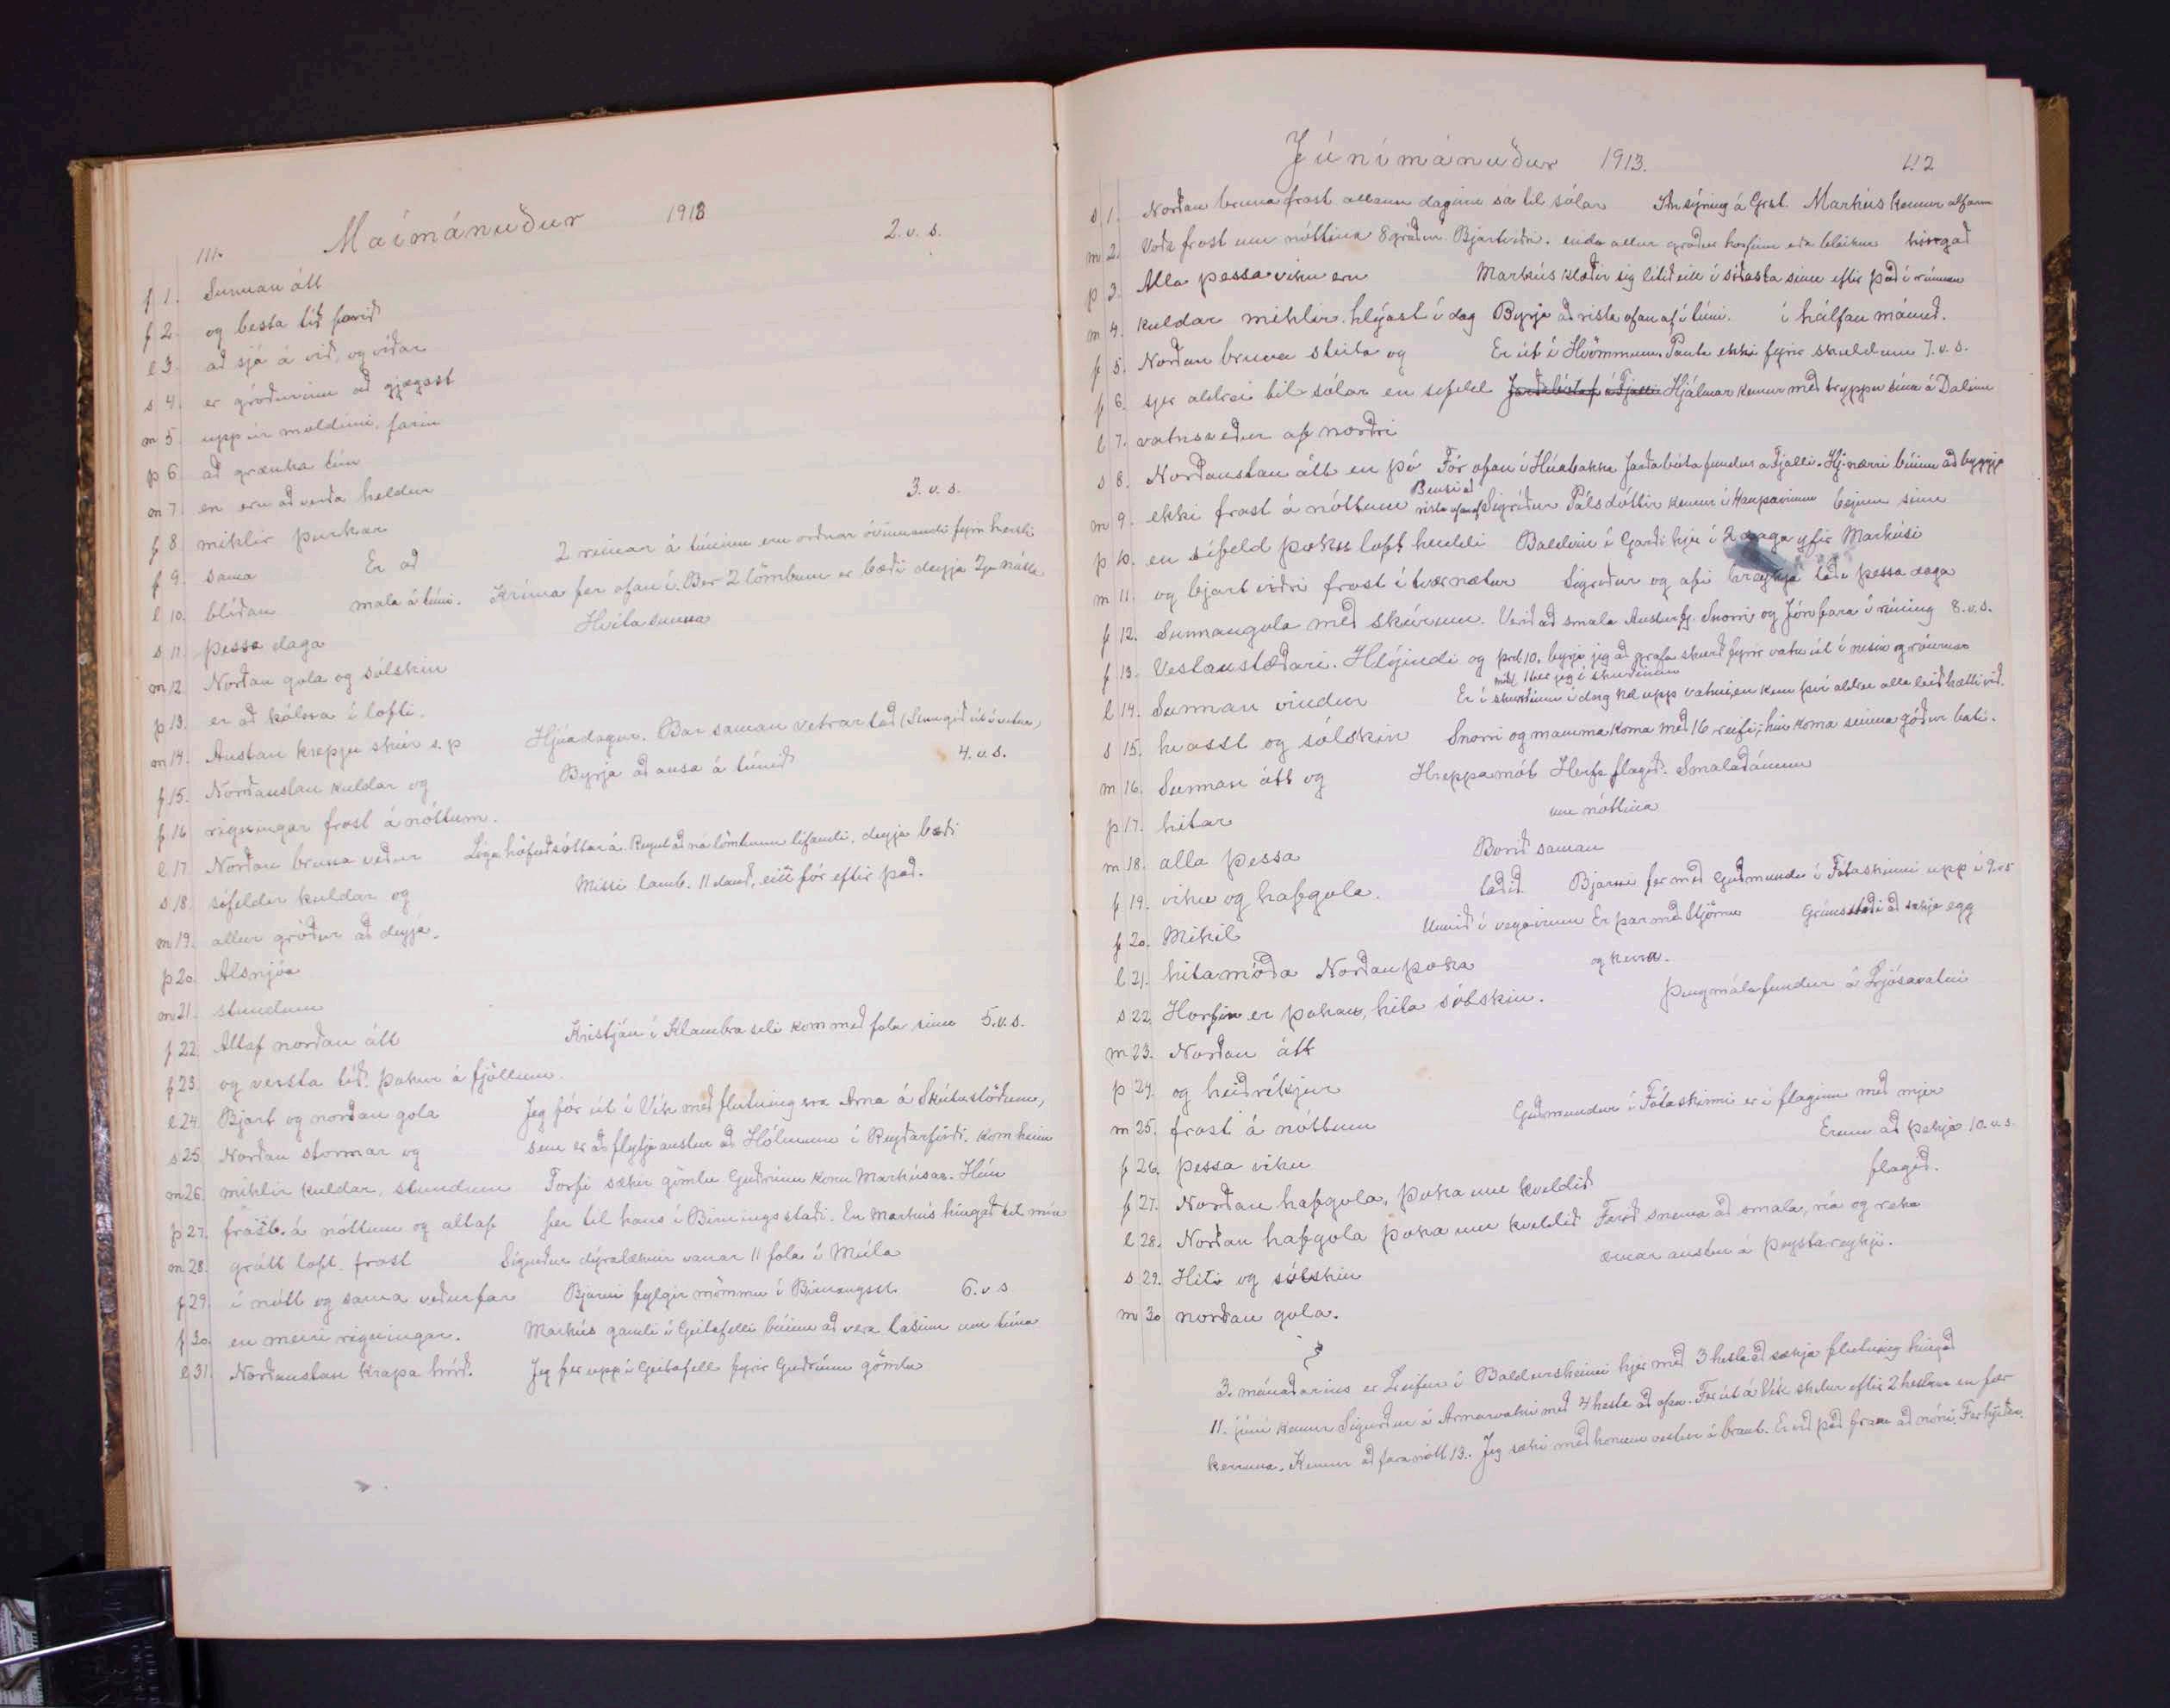 111. Maímánuður 1913
f 1. Sunnan átt 2. v. s.
f 2. og besta tíð farið
l 3. að sjá á við, og víðar
s 4. er gróðurinn að gjægast
m 5. upp úr moldinni, farin
þ 6 að grænka tún
m 7. en eru að verða heldur
f 8. miklir þurkar 3. v. s.
f 9. sama Er að 2 rimar á túninu eru orðnar óvinnandi fyrir herslu
l 10. blíðan mala á túni. Kríma fer ofan í. Ber 2 lömbum er bæði deyja
s 11. þessa daga Hvítasunna
m 12. Norðan gola og sólskin
þ 13. er að kólna í lofti.
m 14. Austan kreppju skúr s. p Hjúadagur. Bar saman vetrartað (Stungið út í vetur)
f 15. Norðaustan kuldar og Byrja að ausa á túnið 4. v. s.
f 16 rigningar frost á nóttum.
l 17. Norðan bruna veður Lóga höfuðsóttar á. Reynt að ná lömbunum lifandi, deyja bæði
s 18. sífeldir kuldar og Missi lamb. 11 dauð, eitt fór eftir það.
m 19. allur gróður að deyja.
þ 20. Alsnjóa
m 21. stundum
f 22. Altaf norðan átt Kristján í Klambraseli kom með fola sinn 5. v. s.
f 23. og versta tíð. Þokur á fjöllum.
l 24. Bjart og norðan gola Jeg fór út í Vík með flutning sra Árna á Skútustöðum,
s 25. Norðan stormar og sem er að flytja austur að Hólmum í Reyðarfirði. Kom heim
m 26. miklir kuldar, stundum Torfi sækir gömlu Guðrúnu konu Markúsar. Hún
þ 27. frost. á nóttum og altaf fer til hans í Birningsstaði. En Markús hingað til mín
m 28. grátt loft. frost Sigurður dýralæknir vanar 11 fola í Múla
f 29. í nótt og sama veðurfar Bjarni fylgir mömmu í Birningsst. 6. v. s
f 30. en meiri rigningar. Markús gamli í Geitafelli búinn að vera lasinn um tíma
l 31. Norðaustan krapa hríð. Jeg fer upp í Geitafell fyrir Guðrúnu gömlu
Júnímánuður 1913. 112
s 1. Norðan bruna frost allann daginn sá til sólar Markús kemur alfarinn
m 2. Voða frost um nóttina 8 gráður. Bjartviðri. enda allur gróður horfinn eða bleikur hingað
þ 3. Alla þessa viku eru Markús klæðir sig lítið eitt í síðasta sinn eftir það í rúminu
m 4. kuldar miklir. hlýast í dag Byrja að rista ofan af í túni. í hálfan mánuð.
f 5. Norðan bruna steita og Er út í Hvömmum. Panta ekki fyrir skuldum 7. v. s.
f 6. sjer aldrei til sólar en sífeld Hjálmar kemur með tryppin sína á Dalinn
l 7. vatnsveður af norðri
s 8. Norðaustan átt en þó Fór ofan í Húabakka Jarðabótafundur á Fjalli. Hj. nærri búinn að byggja
m 9. ekki frost á nóttum Bensi að rista ofanaf Sigríður Pálsdóttir kemur í Kaupavinnu bæinn sinn
þ 10. en sífeld þoku loft kuldi Baldvin í Garði hjer í 2 daga yfir Markúsi
m 11. og bjart viðri frost í tvær nætur Sigríður og afi breykja töðu þessa daga
f 12. Sunnangola með skúrum. Verið að smala Austurfj. Snorri og Jón fara í rúning 8. v. s.
f 13. Vestanstæðari. Hlýindi og þrd 10. byrja jeg að grafa skurð fyrir vatn út í
l 14. Sunnan vindur Er í skurðinum í dag næ upp vatni, en kem því aldrei alla leið hætti við.
s 15. hvasst og sólskin Snorri og mamma koma með 16 reifi, hin koma seinna góður bati.
m 16. Sunnan átt og Hreppamót Herfa flagið. Smaladámur
þ 17. hitar um nóttina
m 18. alla þessa Borið saman
f 19. viku og hafgola. taðið. Bjarni fer með Guðmundi í Fótaskinni upp í 9. v. s
f 20. Mikil Unnið í veginum Er þar með Stjörnu Grímsstaði að sækja egg
l 21. hitamóða Norðanþoka og kerru.
s 22. Horfin er þokan, hita sólskin. Þingmálafundur á Ljósavatni
m 23. Norðan átt
þ 24. og heiðríkjur
m 25. frost á nóttum Guðmundur í Fótaskinni er í flaginu með mjer
f 26. þessa viku Erum að þekja 10. v. s.
f 27. Norðan hafgola. Þoka um kveldið flagið.
l 28. Norðan hafgola þoka um kveldið Farið snema að smala, ría og reka
s 29. Hiti og sólskin ærnar austur á Þeystareykji.
m 30 norðan gola.
3. mánaðarins er Leifur í Baldursheimi hjer með 3 hesta að sækja flutning hingað
11. júní kemur Sigurður á Arnarvatni með 4 hesta að ofan. Fer út á Vík skilur eftir 2 hestana en fær
kerruna. Kemur að fara nótt 13. Jeg sæki með honum vestur á braut. Er við það fram að nóni.